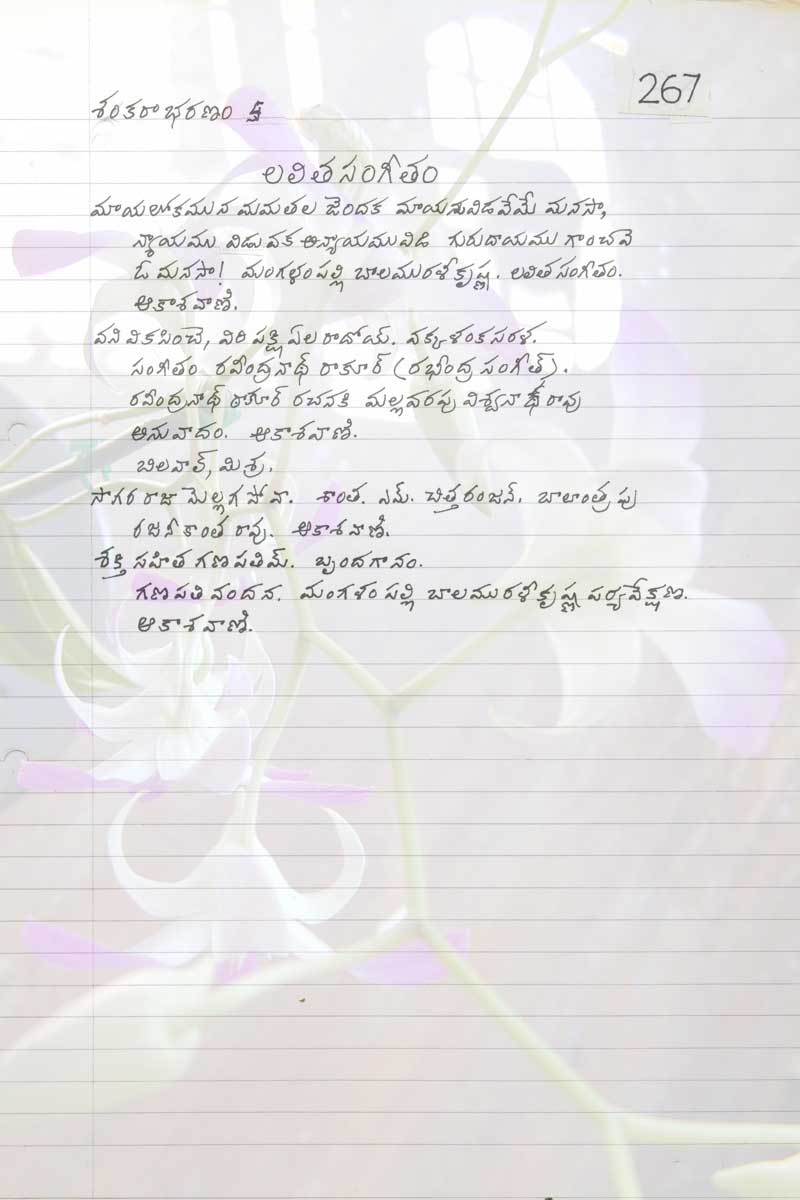 267
శంకరాభరణం 5
లలితసంగీతం
మాయలోకమున మమతల జెందక మాయనువిడవేమే మనసా,
న్యాయము విడువక అన్యాయమువిడి గురుదాయము గాంచవె
ఓ మనసా! మంగళంపల్లి బాలమురళీకృష్ణ. లలితసంగీతం.
ఆకాశవాణి.
వని వికసించె, విరి పక్షి ఏల రాదోయ్. వక్కళంక సరళ.
సంగీతం రవీంద్రనాథ్ ఠాకూర్ (రభీంద్ర సంగీత్).
రవీంద్రనాథ్ ఠాకూర్ రచనకి మల్లవరపు విశ్వనాథ్ రావు
అనువాదం. ఆకాశవాణి.
బిలవాల్, మిశ్ర.
సాగర రాజా మెల్లగ పోవా. శాంత. ఎమ్. చిత్తరంజన్. బాలాంత్రపు
రజనీకాంత రావు. ఆకాశవాణి.
శక్తి సహిత గణపతిమ్. బృందగానం.
గణపతి వందన. మంగళంపల్లి బాలమురళీకృష్ణ పర్యవేక్షణ.
ఆకాశవాణి.